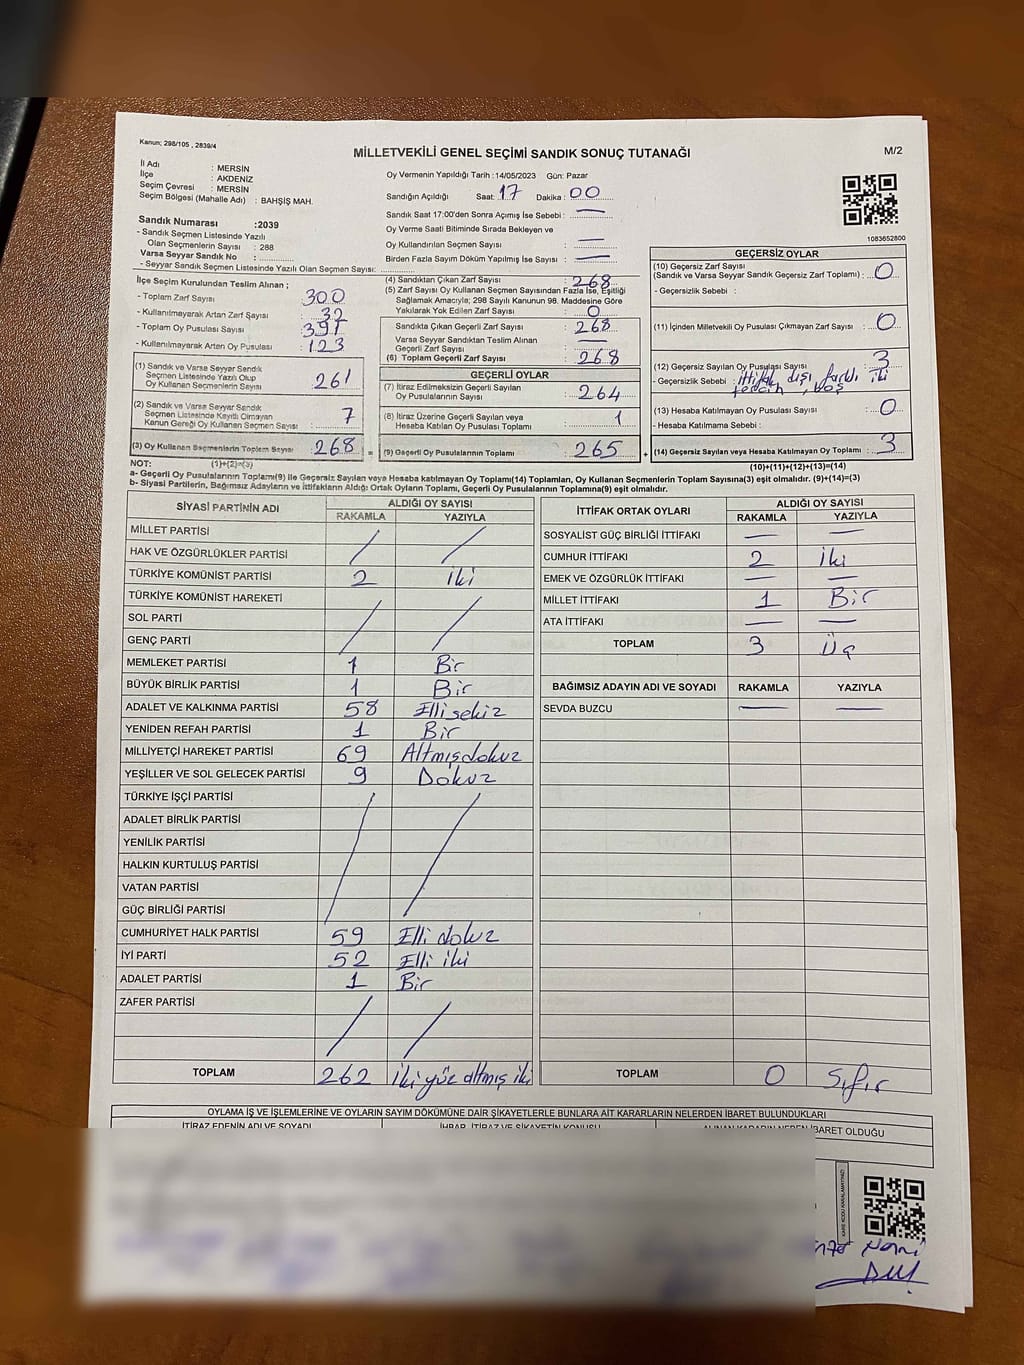 Kanun; 298/105 , 2839/4
MİLLETVEKİLİ GENEL SEÇİMİ SANDIK SONUÇ TUTANAĞI
M/2
İl Adı : MERSİN
İlçe : AKDENİZ
Seçim Çevresi : MERSİN
Seçim Bölgesi (Mahalle Adı) : BAHŞİŞ MAH.
Sandık Numarası :2039
- Sandık Seçmen Listesinde Yazılı
Olan Seçmenlerin Sayısı : 288
Varsa Seyyar Sandık No :
- Seyyar Sandık Seçmen Listesinde Yazılı Olan Seçmen Sayısı:
Oy Vermenin Yapıldığı Tarih :14/05/2023 Gün: Pazar
Sandığın Açıldığı Saat: 17 Dakika : 00
Sandık Saat 17:00'den Sonra Açımış İse Sebebi : —
Oy Verme Saati Bitiminde Sırada Bekleyen ve
Oy Kullandırılan Seçmen Sayısı : —
Birden Fazla Sayım Döküm Yapılmış İse Sayısı : —
1083652800
İlçe Seçim Kurulundan Teslim Alınan ;
- Toplam Zarf Sayısı : 300
- Kullanılmayarak Artan Zarf Sayısı : 32
- Toplam Oy Pusulası Sayısı : 391
- Kullanılmayarak Artan Oy Pusulası : 123
(1) Sandık ve Varsa Seyyar Sandık
Seçmen Listesinde Yazılı Olup
Oy Kullanan Seçmenlerin Sayısı : 261
(2) Sandık ve Varsa Seyyar Sandık
Seçmen Listesinde Kayıtlı Olmayan
Kanun Gereği Oy Kullanan Seçmen Sayısı : 7
(3) Oy Kullanan Seçmenlerin Toplam Sayısı : 268 =
(4) Sandıktan Çıkan Zarf Sayısı : 268
(5) Zarf Sayısı Oy Kullanan Seçmen Sayısından Fazla İse, Eşitliği
Sağlamak Amacıyla; 298 Sayılı Kanunun 98. Maddesine Göre
Yakılarak Yok Edilen Zarf Sayısı : 0
Sandıkta Çıkan Geçerli Zarf Sayısı : 268
Varsa Seyyar Sandıktan Teslim Alınan
Geçerli Zarf Sayısı : —
(6) Toplam Geçerli Zarf Sayısı : 268
GEÇERLİ OYLAR
(7) İtiraz Edilmeksizin Geçerli Sayılan
Oy Pusulalarının Sayısı : 264
(8) İtiraz Üzerine Geçerli Sayılan veya
Hesaba Katılan Oy Pusulası Toplamı : 1
(9) Geçerli Oy Pusulalarının Toplamı : 265 +
GEÇERSİZ OYLAR
(10) Geçersiz Zarf Sayısı
(Sandık ve Varsa Seyyar Sandık Geçersiz Zarf Toplamı) : 0
- Geçersizlik Sebebi :
(11) İçinden Milletvekili Oy Pusulası Çıkmayan Zarf Sayısı : 0
(12) Geçersiz Sayılan Oy Pusulası Sayısı : 3
- Geçersizlik Sebebi : ittifak dışı farklı iki
tercih, boş
(13) Hesaba Katılmayan Oy Pusulası Sayısı : 0
- Hesaba Katılmama Sebebi :
(14) Geçersiz Sayılan veya Hesaba Katılmayan Oy Toplamı : 3
NOT: (1)+(2)=(3)
(10)+(11)+(12)+(13)=(14)
a- Geçerli Oy Pusulalarının Toplamı(9) ile Geçersiz Sayılan veya Hesaba katılmayan Oy Toplamı(14) Toplamları, Oy Kullanan Seçmenlerin Toplam Sayısına(3) eşit olmalıdır. (9)+(14)=(3)
b- Siyasi Partilerin, Bağımsız Adayların ve İttifakların Aldığı Ortak Oyların Toplamı, Geçerli Oy Pusulalarının Toplamına(9) eşit olmalıdır.
SİYASİ PARTİNİN ADI ALDIĞI OY SAYISI
RAKAMLA YAZIYLA
MİLLET PARTİSİ
HAK VE ÖZGÜRLÜKLER PARTİSİ
TÜRKİYE KOMÜNİST PARTİSİ 2 iki
TÜRKİYE KOMÜNİST HAREKETİ
SOL PARTİ
GENÇ PARTİ
MEMLEKET PARTİSİ 1 Bir
BÜYÜK BİRLİK PARTİSİ 1 Bir
ADALET VE KALKINMA PARTİSİ 58 Ellisekiz
YENİDEN REFAH PARTİSİ 1 Bir
MİLLİYETÇİ HAREKET PARTİSİ 69 Altmışdokuz
YEŞİLLER VE SOL GELECEK PARTİSİ 9 Dokuz
TÜRKİYE İŞÇİ PARTİSİ
ADALET BİRLİK PARTİSİ
YENİLİK PARTİSİ
HALKIN KURTULUŞ PARTİSİ
VATAN PARTİSİ
GÜÇ BİRLİĞİ PARTİSİ
CUMHURİYET HALK PARTİSİ 59 Elli dokuz
İYİ PARTİ 52 Elli iki
ADALET PARTİSİ 1 Bir
ZAFER PARTİSİ
TOPLAM 262 iki yüz altmış iki
İTTİFAK ORTAK OYLARI ALDIĞI OY SAYISI
RAKAMLA YAZIYLA
SOSYALİST GÜÇ BİRLİĞİ İTTİFAKI — —
CUMHUR İTTİFAKI 2 iki
EMEK VE ÖZGÜRLÜK İTTİFAKI — —
MİLLET İTTİFAKI 1 Bir
ATA İTTİFAKI — —
TOPLAM 3 Üç
BAĞIMSIZ ADAYIN ADI VE SOYADI RAKAMLA YAZIYLA
SEVDA BUZCU — —
TOPLAM 0 Sıfır
OYLAMA İŞ VE İŞLEMLERİNE VE OYLARIN SAYIM DÖKÜMÜNE DAİR ŞİKAYETLERLE BUNLARA AİT KARARLARIN NELERDEN İBARET BULUNDUKLARI
İTİRAZ EDENİN ADI VE SOYADI İHBAR, İTİRAZ VE ŞİKAYETİN KONUSU ALINAN KARARIN NEDEN İBARET OLDUĞU